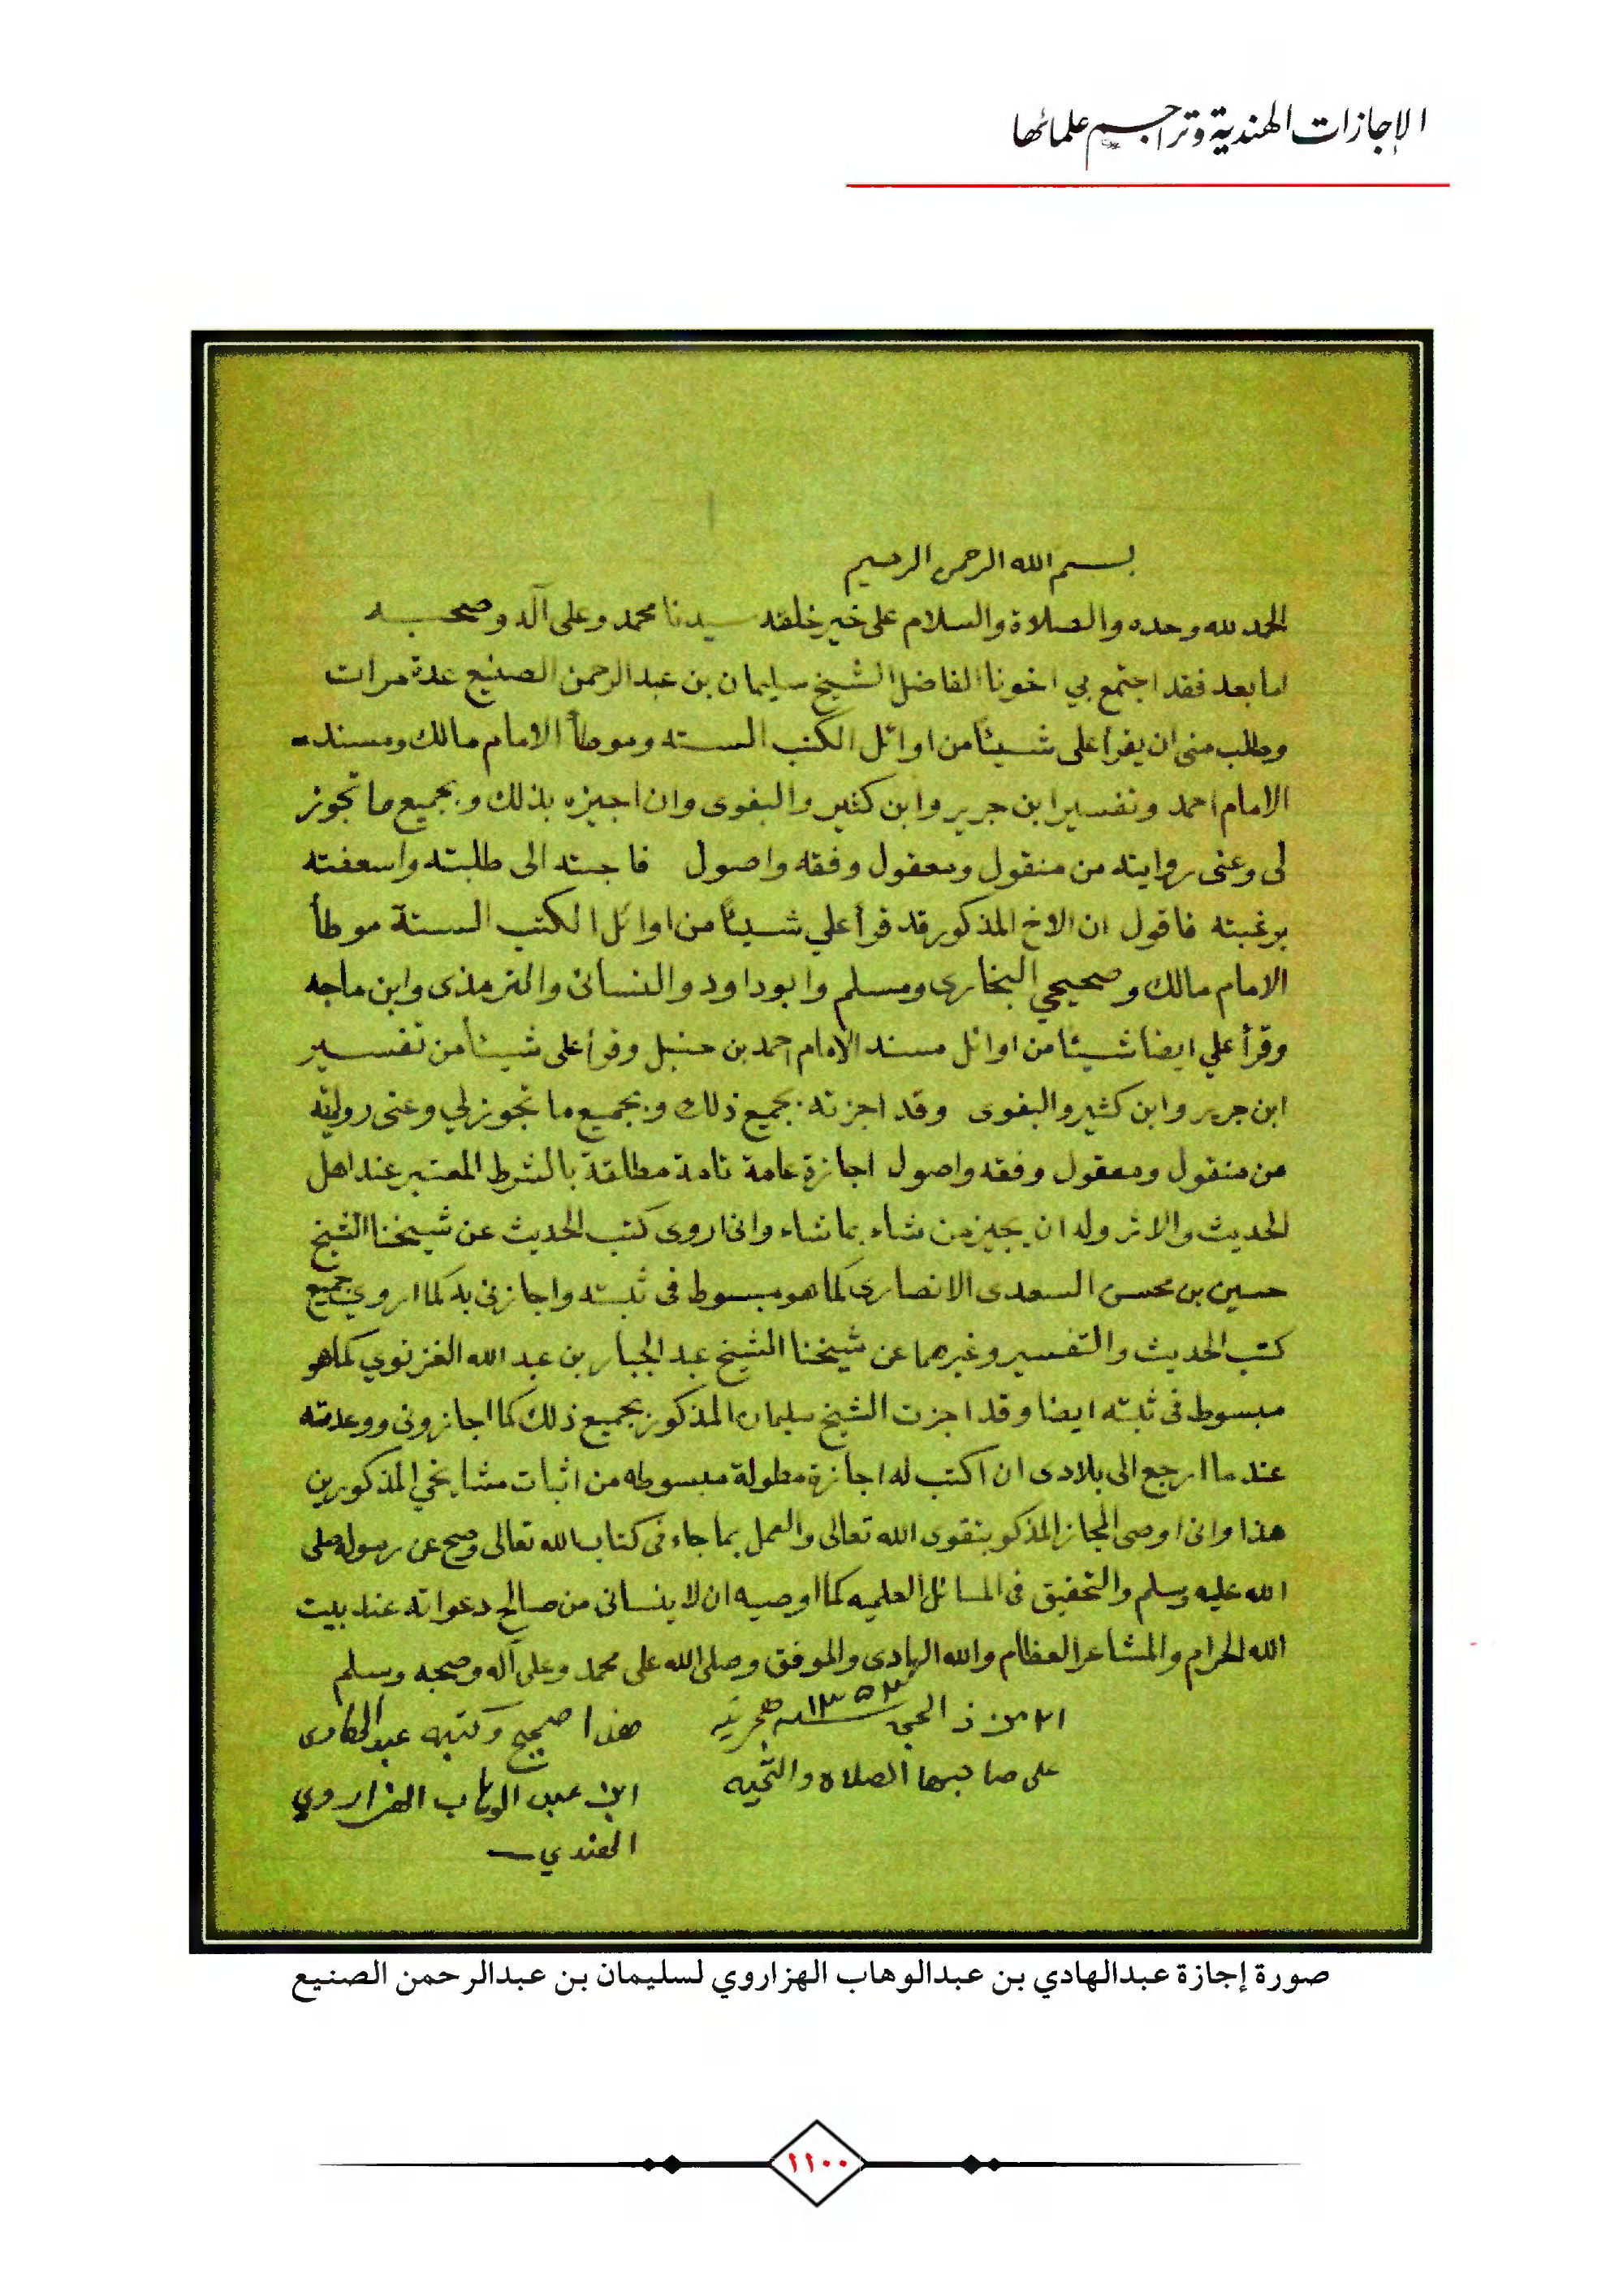 الإجازات الهندية وتراجم علمائها
بسم الله الرحمن الرحيم
الحمد لله وحده والصلاة والسلام على خير خلقه سيدنا محمد وعلى آله وصحبه
اما بعد فقد اجتمع بي اخونا الفاضل الشيخ سليمان بن عبدالرحمن الصنيع عدة مرات
وطلب منى ان يقرأ على شيئاً من اوائل الكتب الستة وموطأ الامام مالك ومسند
الامام احمد وتفسير ابن جرير وابن كثير والبغوى وان اجيزه بذلك وبجميع ما تجوز
لى وعنى روايته من منقول ومعقول وفقه واصول فاجبته الى طلبته واسعفته
برغبته فاقول ان الاخ المذكور قد قرأ علي شيئاً من اوائل الكتب الستة موطأ
الامام مالك وصحيحي البخارى ومسلم وابوداود والنسائى والترمذى وابن ماجه
وقرأ علي ايضا شيئا من اوائل مسند الإمام احمد بن حنبل وقرأ على شيئاً من تفسير
ابن جرير وابن كثير والبغوى وقد اجزته بجميع ذلك وبجميع ما تجوز لي وعنى روايته
من منقول ومعقول وفقه واصول اجازة عامة تامة مطلقة بالشرط المعتبر عند اهل
الحديث والاثر وله ان يجيز من شاء بما شاء وانى اروى كتب الحديث عن شيخنا الشيخ
حسين بن محسن السعدى الانصارى كما هو مبسوط فى ثبته واجازنى به كما اروي جميع
كتب الحديث والتفسير وغيرهما عن شيخنا الشيخ عبد الجبار بن عبد الله الغزنوي كما هو
مبسوط فى ثبته ايضا وقد اجزت الشيخ سليمان المذكور بجميع ذلك كما اجازونى ووعدته
عندما ارجع الى بلادى ان اكتب له اجازة مطولة مبسوطه من اثبات مشايخي المذكورين
هذا وانى اوصى المجاز المذكو بتقوى الله تعالى والعمل بما جاء فى كتاب الله تعالى وصح عن رسوله صلى
الله عليه وسلم والتحقيق فى المسائل العلميه كما اوصيه ان لا ينسانى من صالح دعواته عند بيت
الله الحرام والمشاعر العظام والله الهادى والموفق وصلى الله على محمد وعلى آله وصحبه وسلم
من ذ الحجـ ١٣٥٣ هجرية
على صاحبها الصلاة والتحيه
هذا صحيح وكتبه عبدالهادى
ابن عبد الوهاب الهزاروي
الهندي
صورة إجازة عبدالهادي بن عبدالوهاب الهزاروي لسليمان بن عبدالرحمن الصنيع
١١٠٠